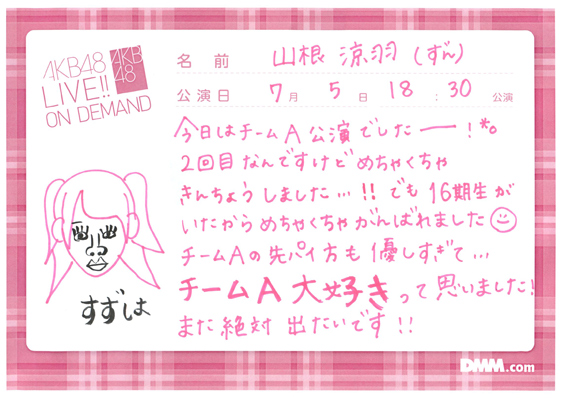 AKB48
LIVE!!
ON DEMAND
AKB
48
名前 山根 涼羽 (ずん)
公演日 7月 5日 18:30 公演
今日はチームA公演でしたー!
2回目なんですけど めちゃくちゃ
きんちょうしました…!! でも 16期生が
いたから めちゃくちゃ がんばれました
チームAの先パイ方も 優しすぎて…
チームA 大好き って思いました!
また 絶対 出たいです!!
すずは
DMM.com